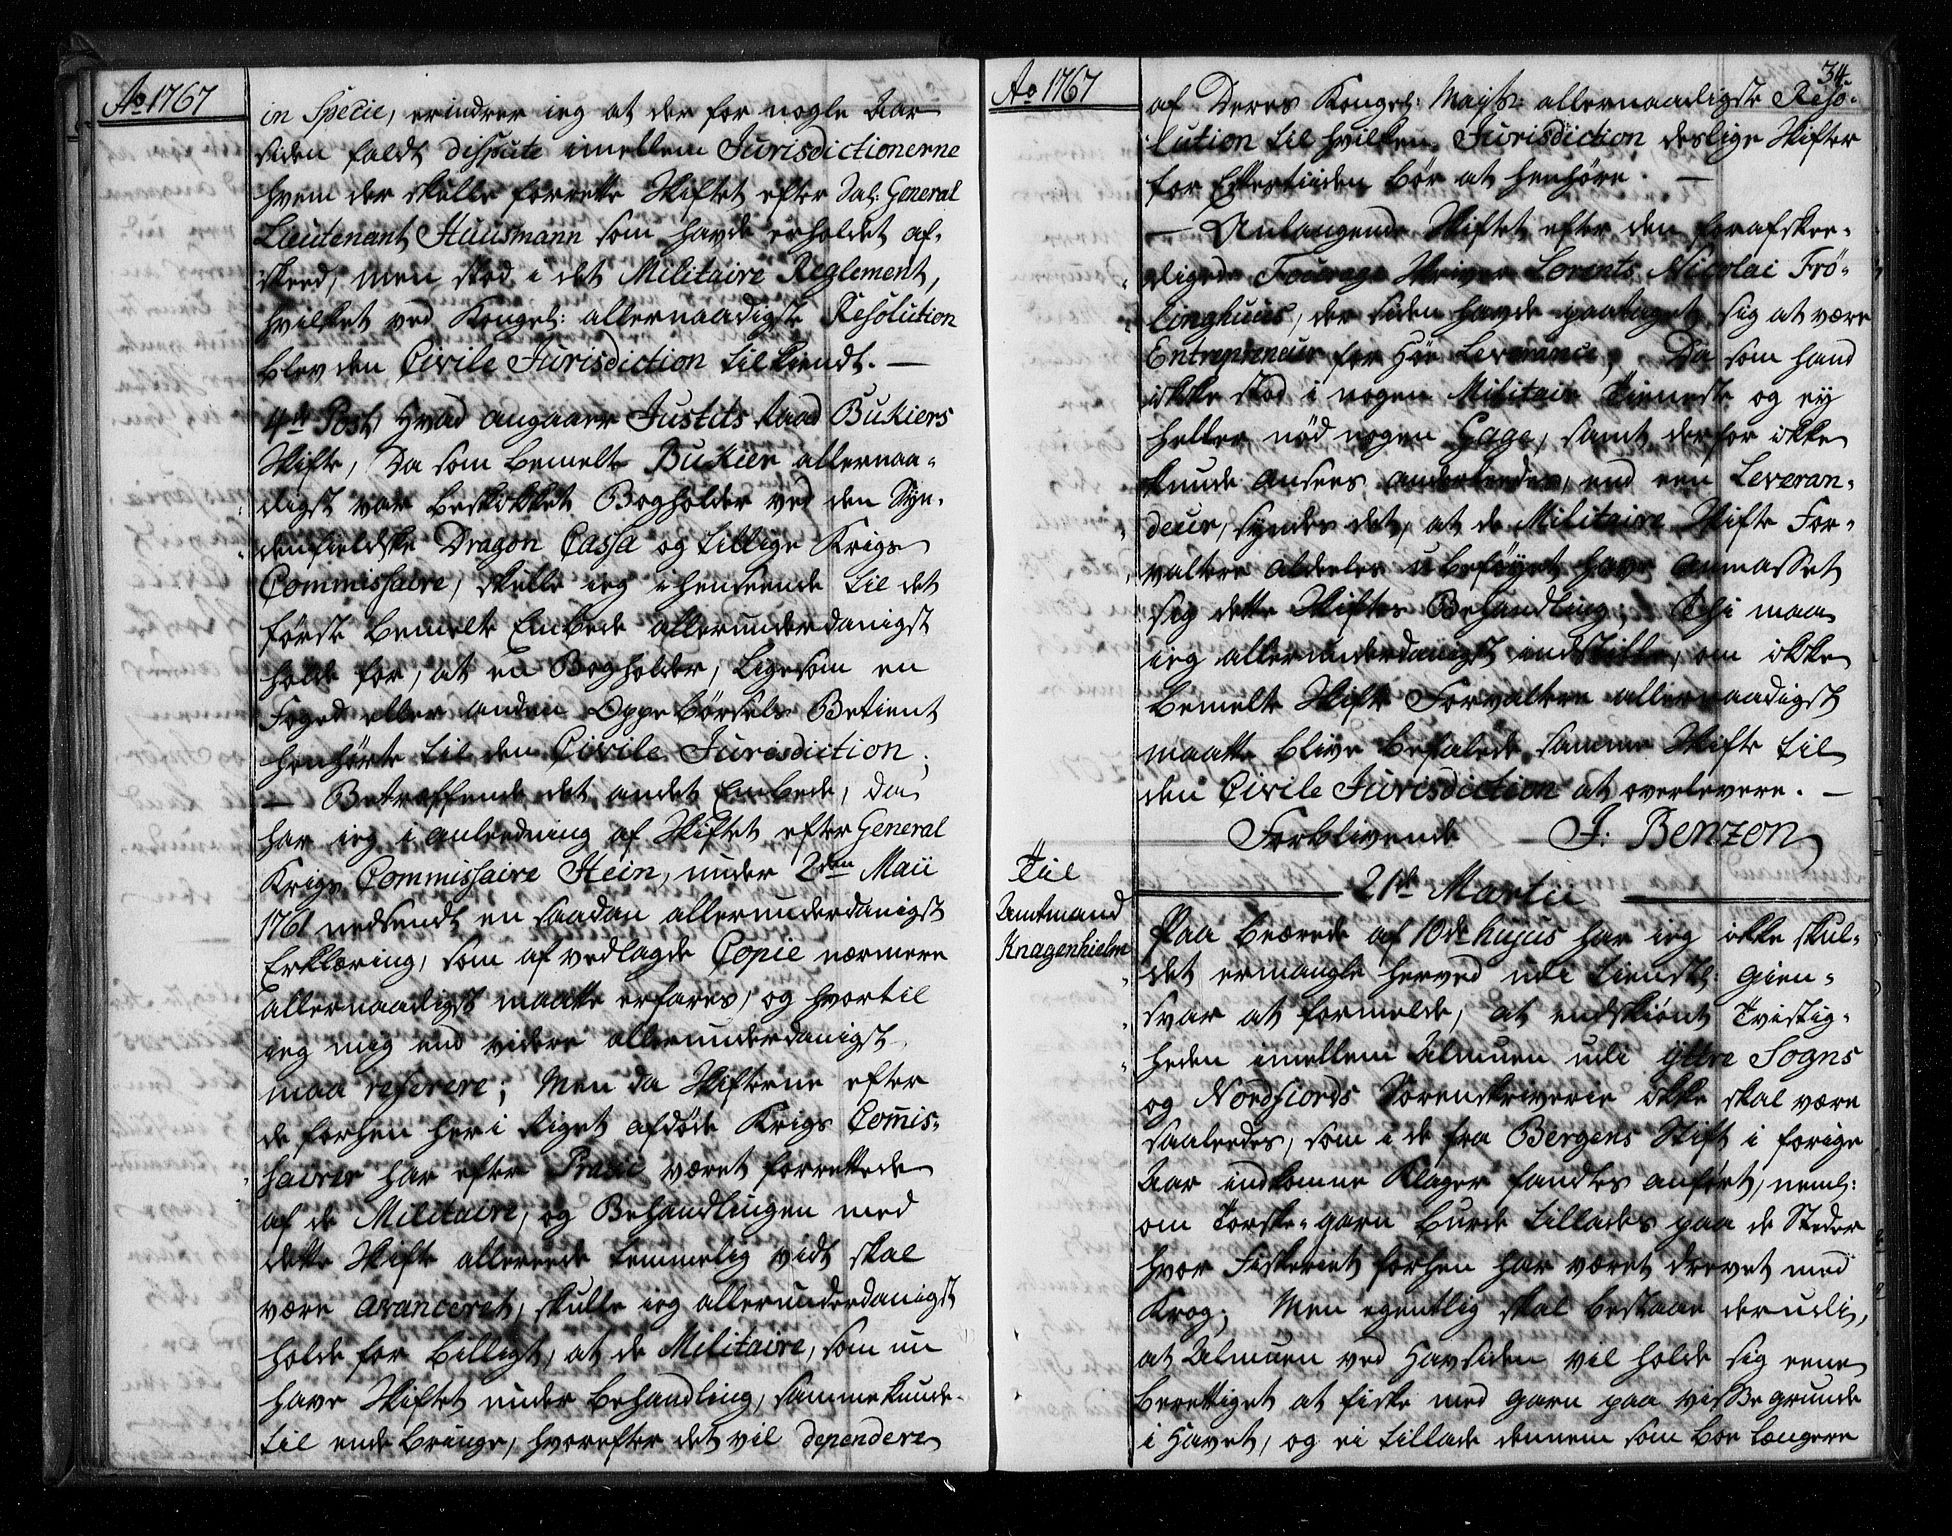 Ao 1767
in Specie, erindrer ieg at der for nogle Aar
siden faldt dispute imellem Jurisdictionerne
hvem der skulle forrette Skiftet efter Sal: General
Lieutenant Huusmann som havde erholdet af-
skeed, men stod i det Militaire Reglement,
hvilket ved Kongel: allernaadigste Resolution
blev den Civile Jurisdiction tilkiendt. —
4de Post, Hvad angaaer Justits Raad Bukiers
Skifte, Da som bemelte Bukier allernaa-
digst var beskikket Bogholder ved den Syn-
denfieldske Dragon Cassa og tillige Krigs
Commissaire, skulle ieg i henseende til det
første bemelte Embede allerunderdanigst
holde for, at en Bogholder, ligesom en
Foged eller anden Oppebørsels Betient
henhørte til den Civile Jurisdiction;
— Betreffende det andet Embede, da
har ieg i anleedning af Skiftet efter General
Krigs Commissaire Hein, under 2den Maii
1761 nedsendt en saadan allerunderdanigst
Erklæring, som af vedlagde Copie nærmere
allernaadigst maatte erfares, og hvortil
ieg mig end videre allerunderdanigst
maa referere; Men da Skifterne efter
de forhen her i Riget afdøde Krigs Commis-
sairer har efter Praxin været forrettede
af de Militaire, og Behandlingen med
dette Skifte allereede temmelig vidt skal
være avanceret, skulle ieg allerunderdanigst
holde for billigst, at de Militaire, som nu
have Skiftet under behandling, samme kunde
til ende bringe, hvorefter det vil dependere
Ao 1767
34.
af Deres Kongel: Mayts: allernaadigste Reso-
lution til hvilken Jurisdiction deslige Skifter
for Eftertiiden bør at henhøre. —
— Anlangende Skiftet efter den forafskee-
digede Fourage Skriver Lorents Nicolai Frø-
linghuus, der siden havde paataget sig at være
Entrepreneur for Høe Leverance, Da som hand
ikke stod i nogen Militair Tieneste og ey
heller nød nogen Gage, samt derfor ikke
kunde ansees anderleedes, end een Leveran-
deur, syndes det, at de Militaire Skifte For-
valtere aldeles ubeføyet have anmasset
sig dette Skiftes Behandling; Thi maa
ieg allerunderdanigst indstille, om ikke
bemelte Skifte Forvaltere allernaadigst
maatte blive befalede samme Skifte til
den Civile Jurisdiction at overlevere. —
Forblivende J. Benzon
21de Martii
Til
Amtmand
Knagenhielm
Paa beærede af 10de hujus har ieg ikke skul-
det ermangle herved udi tienstl: gien-
svar at formelde, at endskiønt Tvistig-
heden imellem Almuen udi Yttre Sogns
og Nordfiords Sorenskriverie ikke skal være
saaleedes, som i de fra Bergens Stift i forige
Aar indkomne Klager fandtes anført, neml:
om Torske-garn burde tillades paa de Steder
hvor Fiskeriet forhen har været drevet med
Krog; Men egentlig skal bestaae derudi,
at Almuen ved Havsiden vil holde sig eene
berettiget at fiske med garn paa visse grunde
i Havet, og ei tillade dennem som boe længere